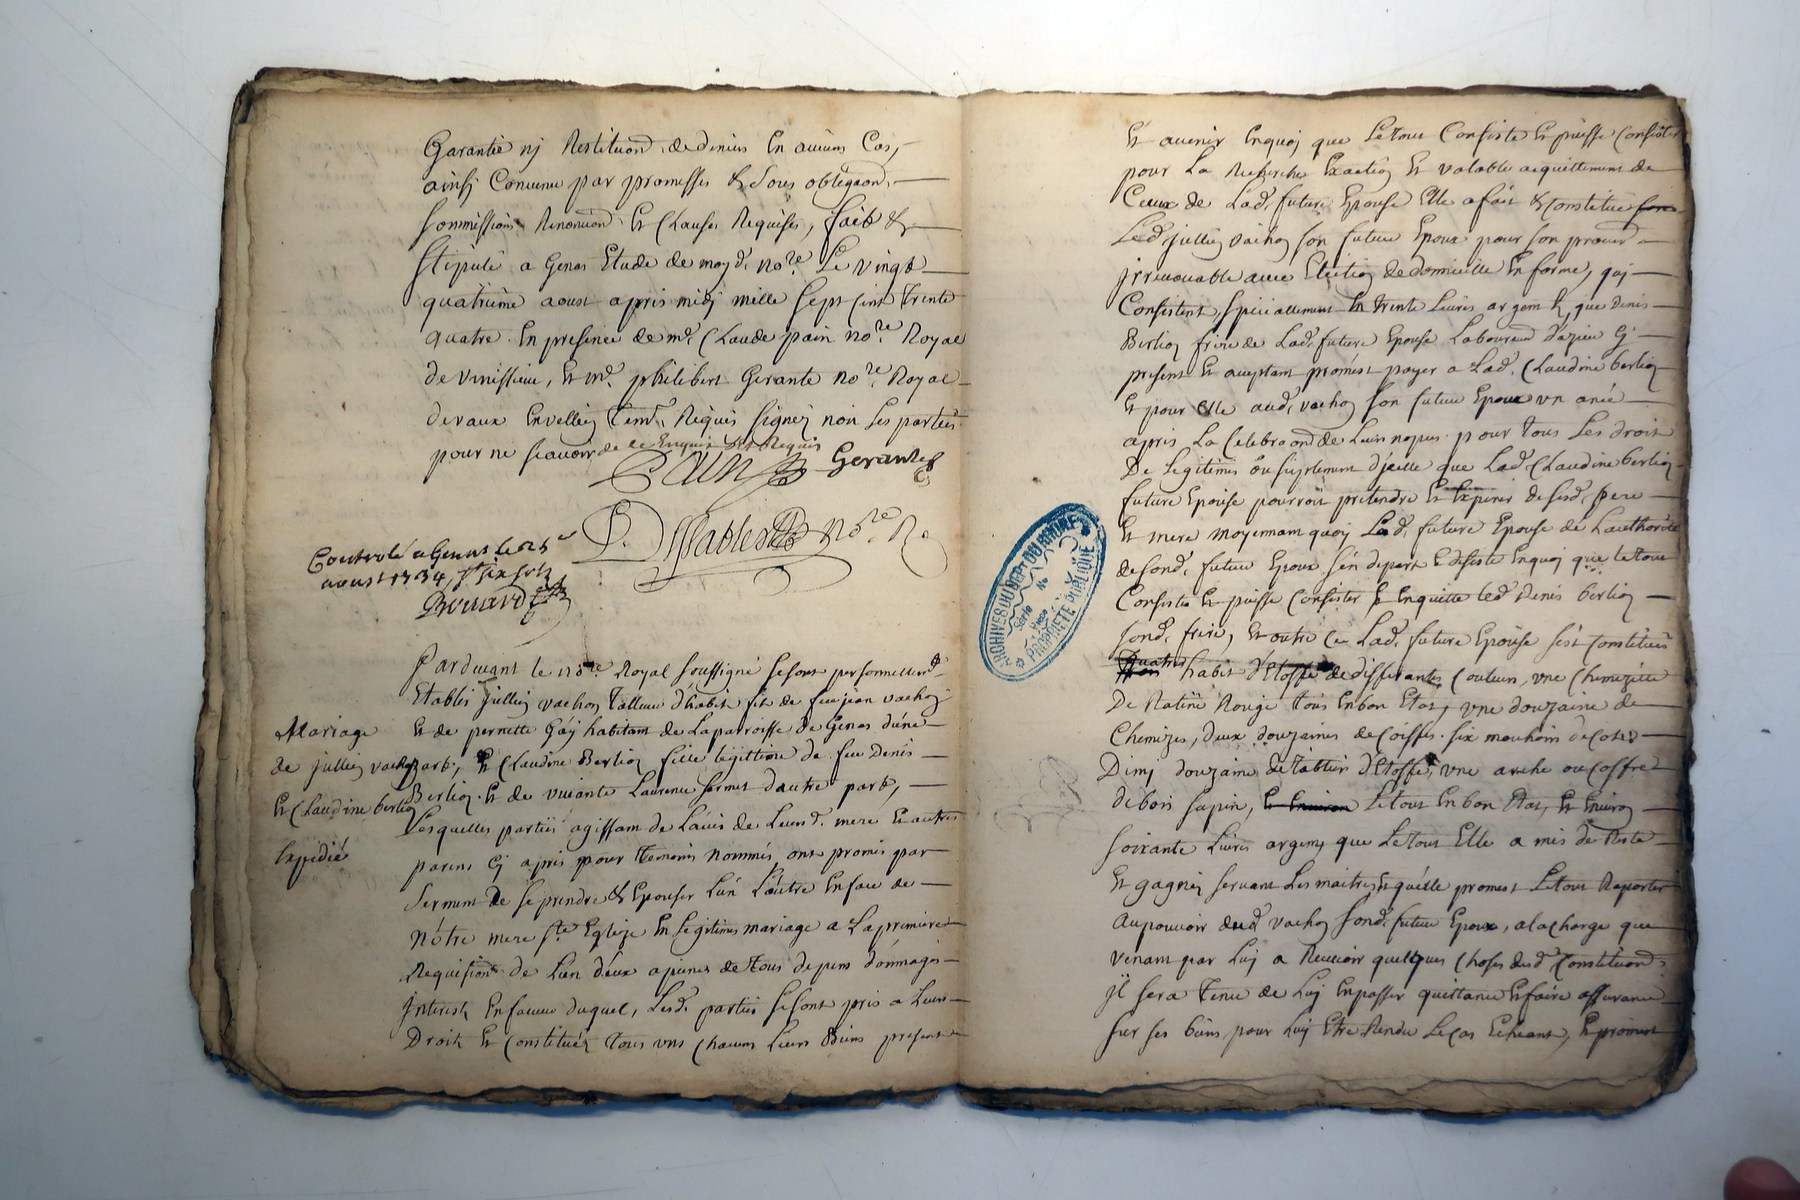 Garantie nj Restituon. de deniers En aucuns Cas,
ainsj Convenu par promesses & Sous obligaons,
Sommissions Renonciaon Et Clauses Requises, fait &
Stipulé a Genas Etude de moyd. nore. Le vingt
quatrieme aoust apres midj mille Sept Cent Trente
quatre. En presence de me. Claude pain nore. Royal
de Venissieu, Et me. philibert Gerante nore. Royal
devaux Envellin Temt. Requis Signez non Les parties
pour ne Scavoir de ce Enquis Et Requis
Pain Gerante
Controlé a Genas le 25e
aoust 1734, rt six sols
D. nore R.
Pardevant le nore. Royal Soussigné se sont personnellemt.
Etablis Jullien vachon Tailleur d'habit fil de feu jean vachon
Mariage
de jullien vachon
Et Claudine berlion
Expedié
Et de pernette Gay habitant de Laparroisse de Genas d'une
part, Et Claudine Berlion fille legitime de feu Denis
Berlion. Et de vincente Laurence fermet dautre part,
Lesquelles parties agissant de L'avis de Leursd. mere Et autres
parens Cj apres pour Temoins nommés ont promis par
Serment de se prendre & Epouser L'un L'autre En face de
Nôtre mere Ste Eglize En Legitimes mariage a La premiere
Requisition de L'un d'eux a peines de tous depens dommages
Interest En faveur duquel, Lesd. parties se sont pris a Leurs
Droit Et Constitués Tous uns Chacuns Leurs Biens present
Et avenir Enquoj que Le tout Consiste Et puisse Consister
pour La Recherche Exaction Et valable acquittement de
Ceux de Lad. future Epouse Elle a fait & Constitué
Led. jullien vachon son futur Epoux pour son procur
jrrevocable avec Election de domicille En forme, qui
Consistent Speciallement En trente Livres argent &, que Denis
Berlion frere de Lad. future Epouse Laboureur d'azieu Cj
present Et acceptant promest payer a Lad. Claudine berlion
Et pour Elle aud. vachon son futur Epoux un année
apres La Celebraon de Leurs nopces pour Tous Les droit
De Legitimes ou suplement d'jcelle que Lad. Claudine berlion
future Epouse pourroit pretendre Et Esperer de sesd. pere
Et mere moyennant quoj Lad. future Epouse de L'authorité
de sond. futur Epoux s'en depart & desiste Enquoj que le tout
Consiste Et puisse Consister & Enquitte led. Denis berlion
sond. frere, Et outre Ce Lad. future Epouse s'est Constituée
Quatre habit d'Etoffe de differentes Couleurs, une Chemizette
De Ratine Rouge Tous En bon Etat, une douzaine de
Chemizes, Deux douzaines de Coiffes. six mouchoirs de Col
Dimj douzaine de tabliers d'Etoffe, une arche ou Coffre
de bois sapin, Et Environ Le tout En bon Etat, Et Environ
soixante Livres argent que Le tout Elle a mis de Reste
Et gagnez servant Les maitres Et qu'elle promest Le tout Raporter
au pouvoir dud. vachon sond. futur Epoux, a la charge que
venant par Luj a Recevoir quelques Choses desd. Constituons
jl sera Tenu de Luj En passer quittance & faire assurance
sur ses biens pour Luj Etre Rendu Le Cas Echeant, Et promest
ARCHIVES DU DEPT DU RHONE
PROPRIETE PUBLIQUE